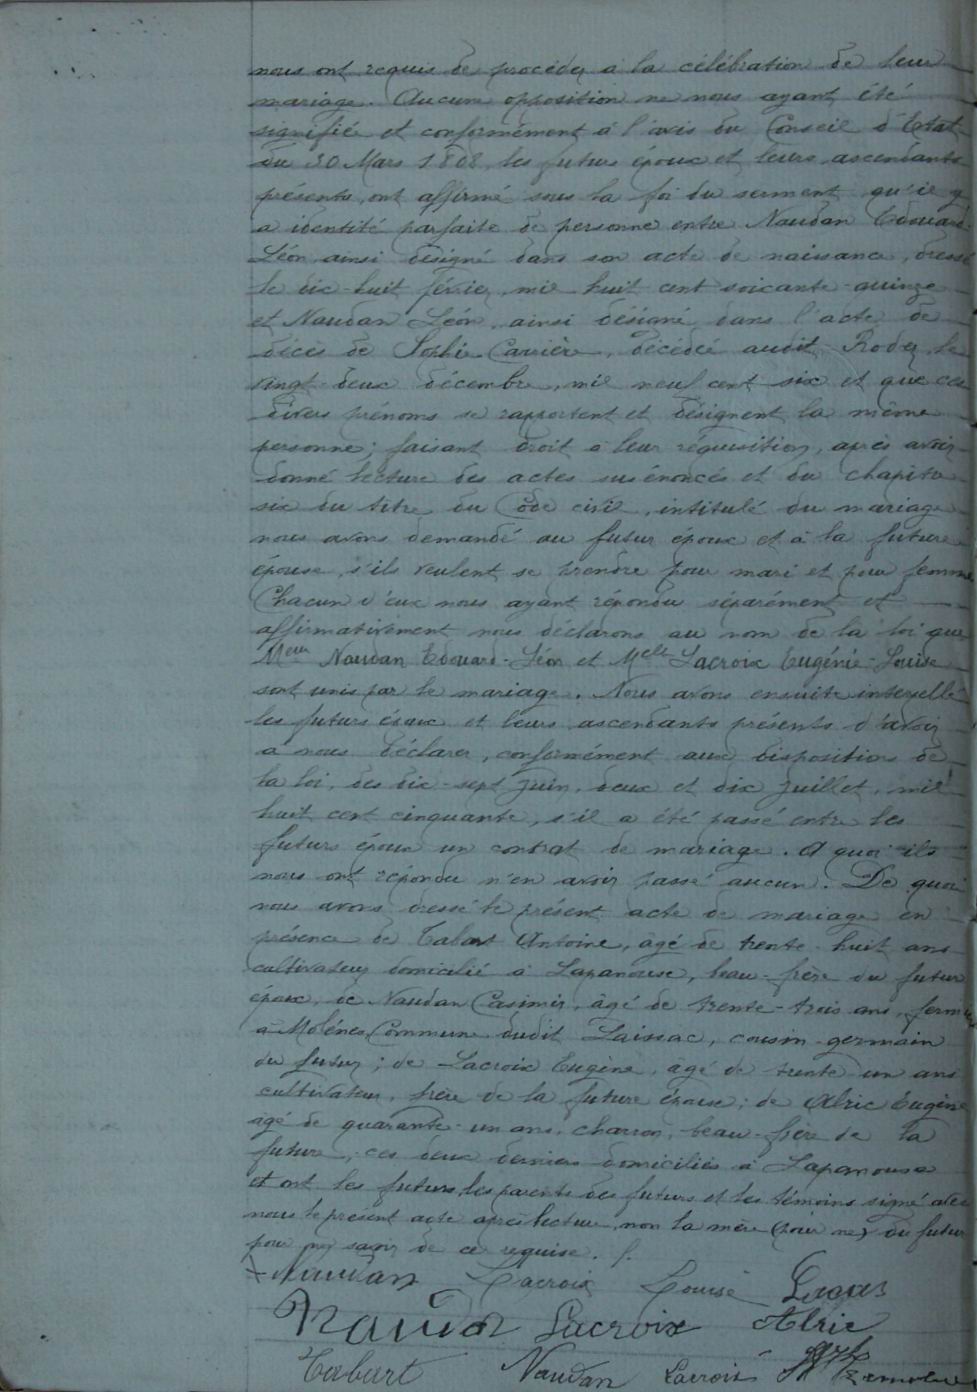 nous ont requis de procéder à la célébration de leur
mariage. Aucune opposition ne nous ayant été
signifié et conformément à l'avis du Conseil d'Etat
du 30 Mars 1808, les futurs époux et leurs ascendants
présents, ont affirmé sous la foi du serment qu'il y
a identité parfaite de personne entre Naudan Edouard
Léon, ainsi désigné dans son acte de naissance, dressé
le dix-huit février, mil huit cent soixante-quinze
et Naudan Léon, ainsi désigné dans l'acte de
décès de Sophie Carrière, décédée audit Rodez, le
vingt-deux décembre, mil neuf cent six et que ces
divers prénoms se rapportent et désignent la même
personne; faisant droit à leur réquisition, après avoir
donné lecture des actes susénoncés et du chapitre
six du titre du Code civil, intitulé du mariage
nous avons demandé au futur époux et à la future
épouse, s'ils veulent se prendre pour mari et pour femme
Chacun d'eux nous ayant répondu séparément et
affirmativement nous déclarons au nom de la loi que
Meur Naudan Edouard-Léon et Melle Lacroix Eugénie-Louise
sont unis par le mariage. Nous avons ensuite interpellé
les futurs époux et leurs ascendants présents d'avoir
à nous déclarer, conformément aux dispositions de
la loi, des dix-sept juin, deux et dix juillet, mil
huit cent cinquante, s'il a été passé entre les
futurs époux un contrat de mariage. A quoi ils
nous ont répondu n'en avoir passé aucun. De quoi
nous avons dressé le présent acte de mariage en
présence de Tabart Antoine, âgé de trente-huit ans
cultivateur domicilié à Lapanouse, beau-frère du futur
époux, de Naudan Casimir, âgé de trente-trois ans, fermier
à Molénes Commune dudit Laissac, cousin germain
du futur; de Lacroix Eugène, âgé de trente un ans
cultivateur, frère de la future épouse; de Alric Eugène
âgé de quarante-un ans, charron, beau-frère de la
future, ces deux derniers domiciliés à Lapanouse
et ont les futurs, les parents des futurs et les témoins signé avec
nous le présent acte après lecture, non la mère du futur
pour ne savoir de ce requise.
Naudan Lacroix Louise
Naudan Lacroix Alric
Tabart Naudan Lacroix